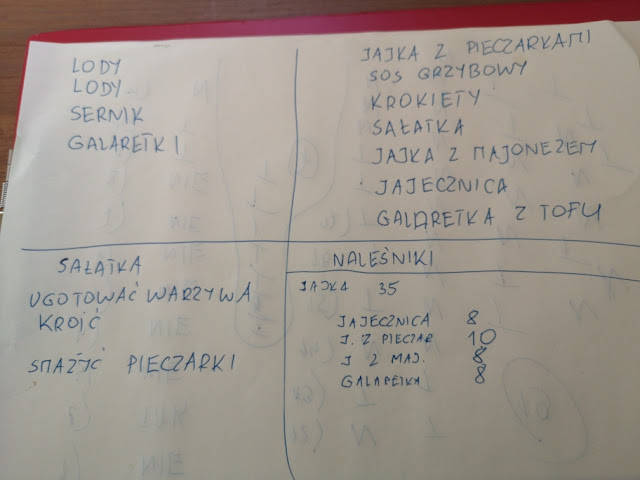 LODY
LODY
SERNIK
GALARETKI
JAJKA Z PIECZARKAMI
SOS GRZYBOWY
KROKIETY
SAŁATKA
JAJKA Z MAJONEZEM
JAJECZNICA
GALARETKA Z TOFU
SAŁATKA
UGOTOWAĆ WARZYWA
KROIĆ
SMAŻYĆ PIECZARKI
NALEŚNIKI
JAJKA 35
JAJECZNICA 8
J. Z PIECZAR 10
J Z MAJ. 8
GALARETKA 8